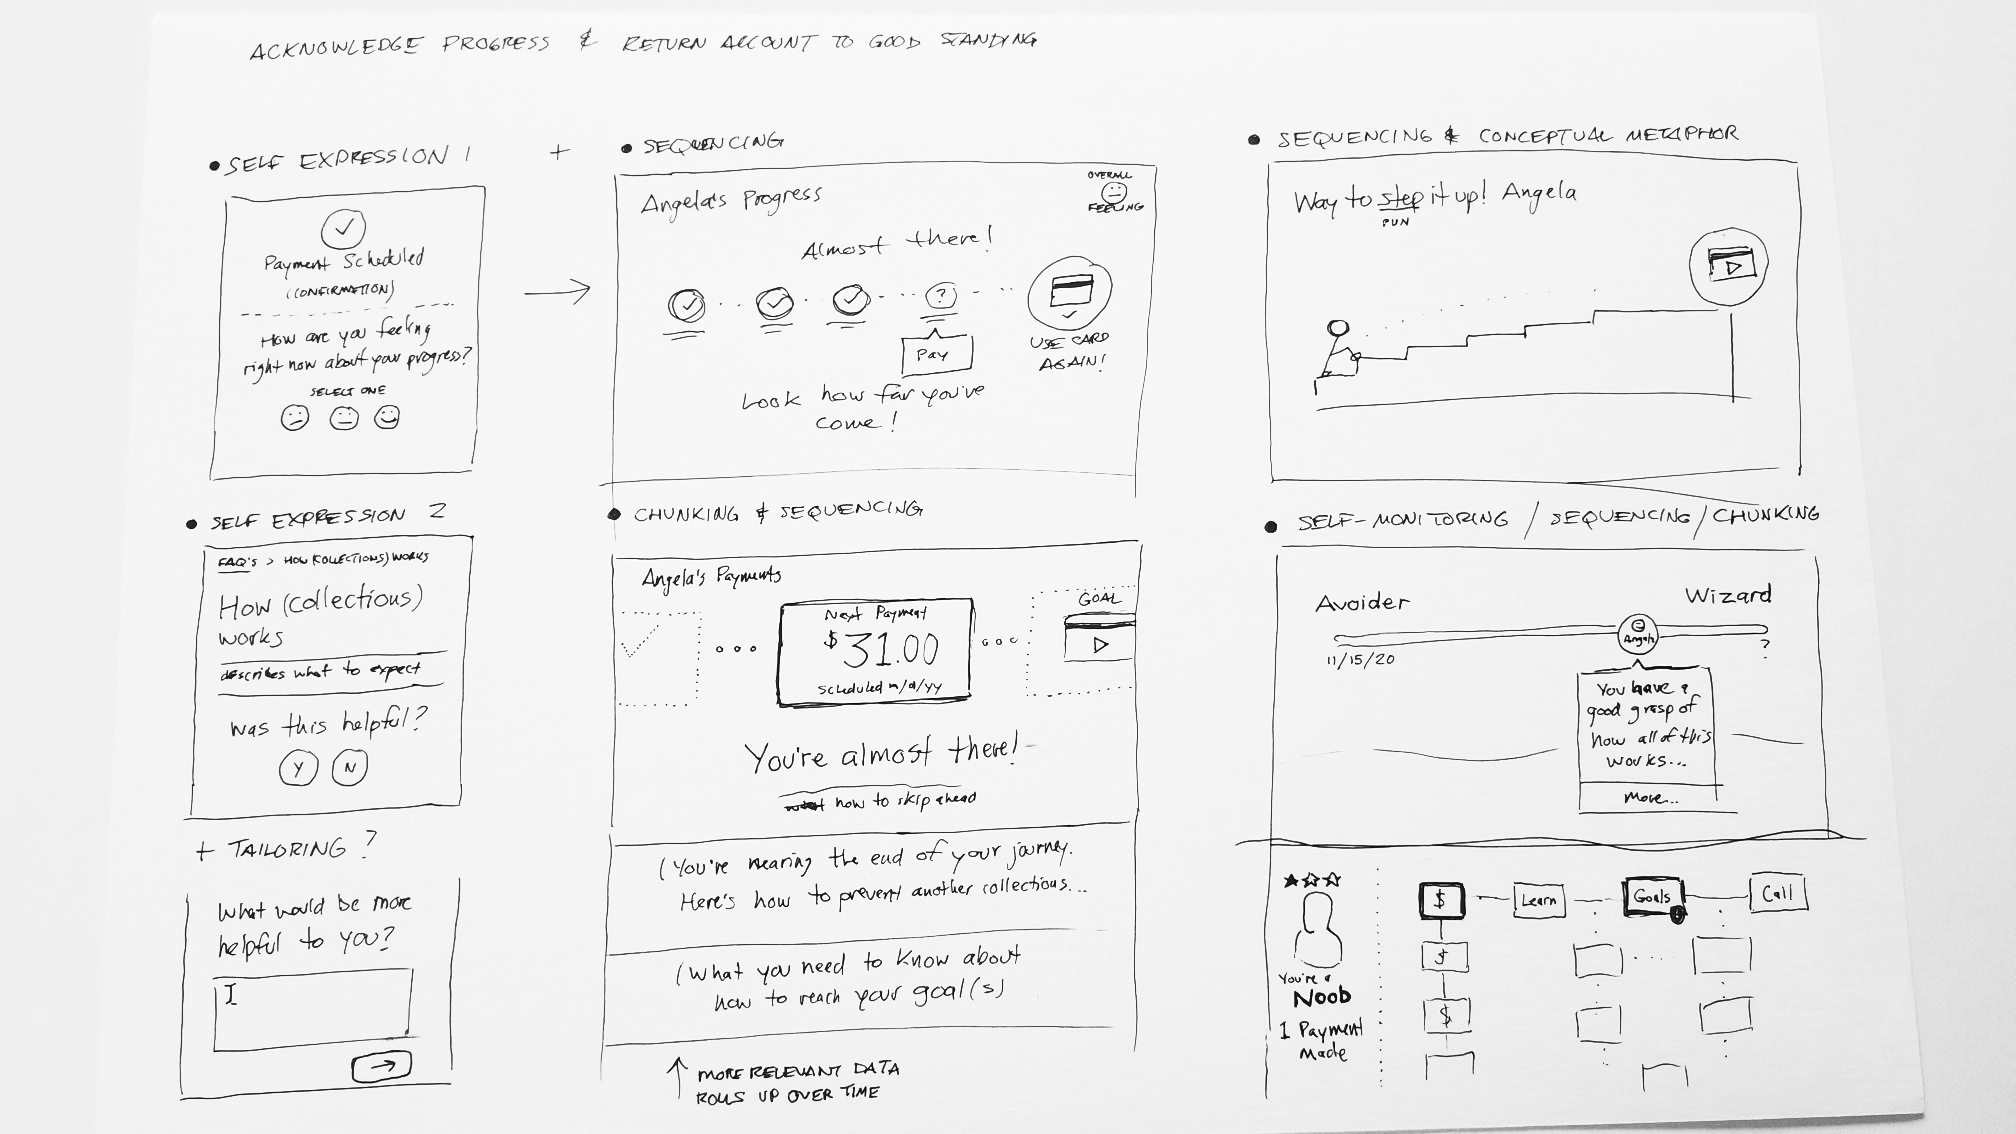 ACKNOWLEDGE PROGRESS & RETURN ACCOUNT TO GOOD STANDING
• SELF EXPRESSION 1
+
Payment Scheduled
(CONFIRMATION)
How are you feeling
right now about your progress?
SELECT ONE
• SEQUENCING
Angela's Progress
OVERALL
FEELING
Almost there!
?
Pay
USE CARD
AGAIN!
Look how far you've
come!
• SEQUENCING & CONCEPTUAL METAPHOR
Way to step it up! Angela
PUN
• SELF EXPRESSION 2
FAQ's > HOW (COLLECTIONS) WORKS
How (collections)
works
describes what to expect
Was this helpful?
Y N
+ TAILORING?
What would be more
helpful to you?
I
→
• CHUNKING & SEQUENCING
Angela's Payments
Next Payment
$31.00
scheduled m/d/yy
GOAL
You're almost there!
how to skip ahead
(You're nearing the end of your journey.
Here's how to prevent another collections...
(What you need to know about
how to reach your goal(s)
↑ MORE RELEVANT DATA
ROLLS UP OVER TIME
• SELF-MONITORING / SEQUENCING / CHUNKING
Avoider
Wizard
11/15/20
Angela
?
You have a
good grasp of
how all of this
works...
more...
★☆☆
You're a
Noob
1 Payment
made
$ Learn Goals Call
$
$